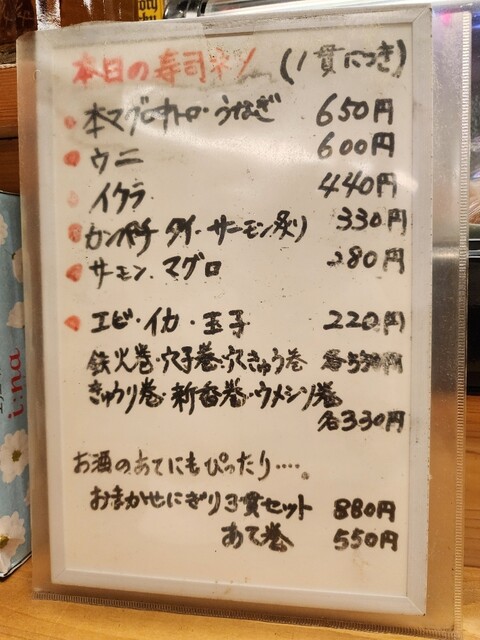 本日の寿司ネタ (1貫につき)
本マグロ中トロ・うなぎ 650円
ウニ 600円
イクラ 440円
カンパチ タイ・サーモン炙り 330円
サーモン.マグロ 280円
エビ・イカ・玉子 220円
鉄火巻・穴子巻・穴きゅう巻 各550円
きゅうり巻・新香巻・ウメシソ巻
各330円
お酒のあてにもぴったり‥‥。
おまかせにぎり3貫セット 880円
あて巻 550円
i:na